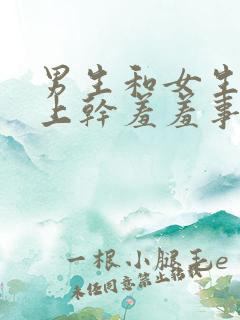 男生和女生
上幹羞羞事
一根小腿毛e
未任同意禁止轉載